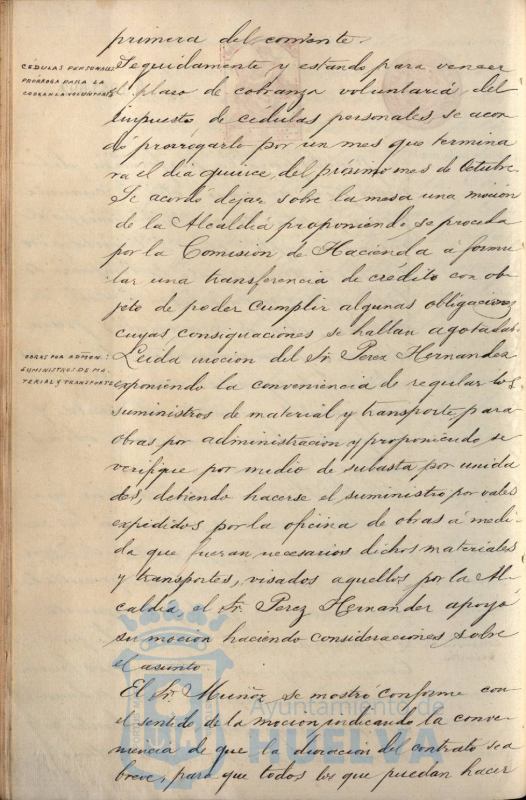 primera del corriente.
CEDULAS PERSONALES
PRORROGA PARA LA
COBRANZA VOLUNTARIA
Seguidamente y estando para vencer
el plazo de cobranza voluntaria del
impuesto de cédulas personales, se acor
dó prorrogarlo por un mes que termina
rá el dia quince del próximo mes de Octubre.
Se acordó dejar sobre la mesa una moción
de la Alcaldía proponiendo se proceda
por la Comisión de Hacienda á formu
lar una transferencia de crédito con ob
jeto de poder cumplir algunas obligaciones
cuyas consignaciones se hallan agotadas.
OBRAS POR ADMON:
SUMINISTROS DE MA-
TERIAL Y TRANSPORTE
Leida mocion del Sr. Perez Hernandez
exponiendo la conveniencia de regular los
suministros de material y transporte para
obras por administracion y proponiendo se
verifique por medio de subasta por unida
des, debiendo hacerse el suministro por vales
expedidos por la oficina de obras á medi
da que fueran necesarios dichos materiales
y transportes, visados aquellos por la Al
caldía, el Sr. Perez Hernandez apoyó
su mocion haciendo consideraciones sobre
el asunto.
El Sr. Muñoz se mostró conforme con
el sentido de la mocion indicando la conve
niencia de que la duracion del contrato sea
breve, para que todos los que puedan hacer
Ayuntamiento de
HUELVA